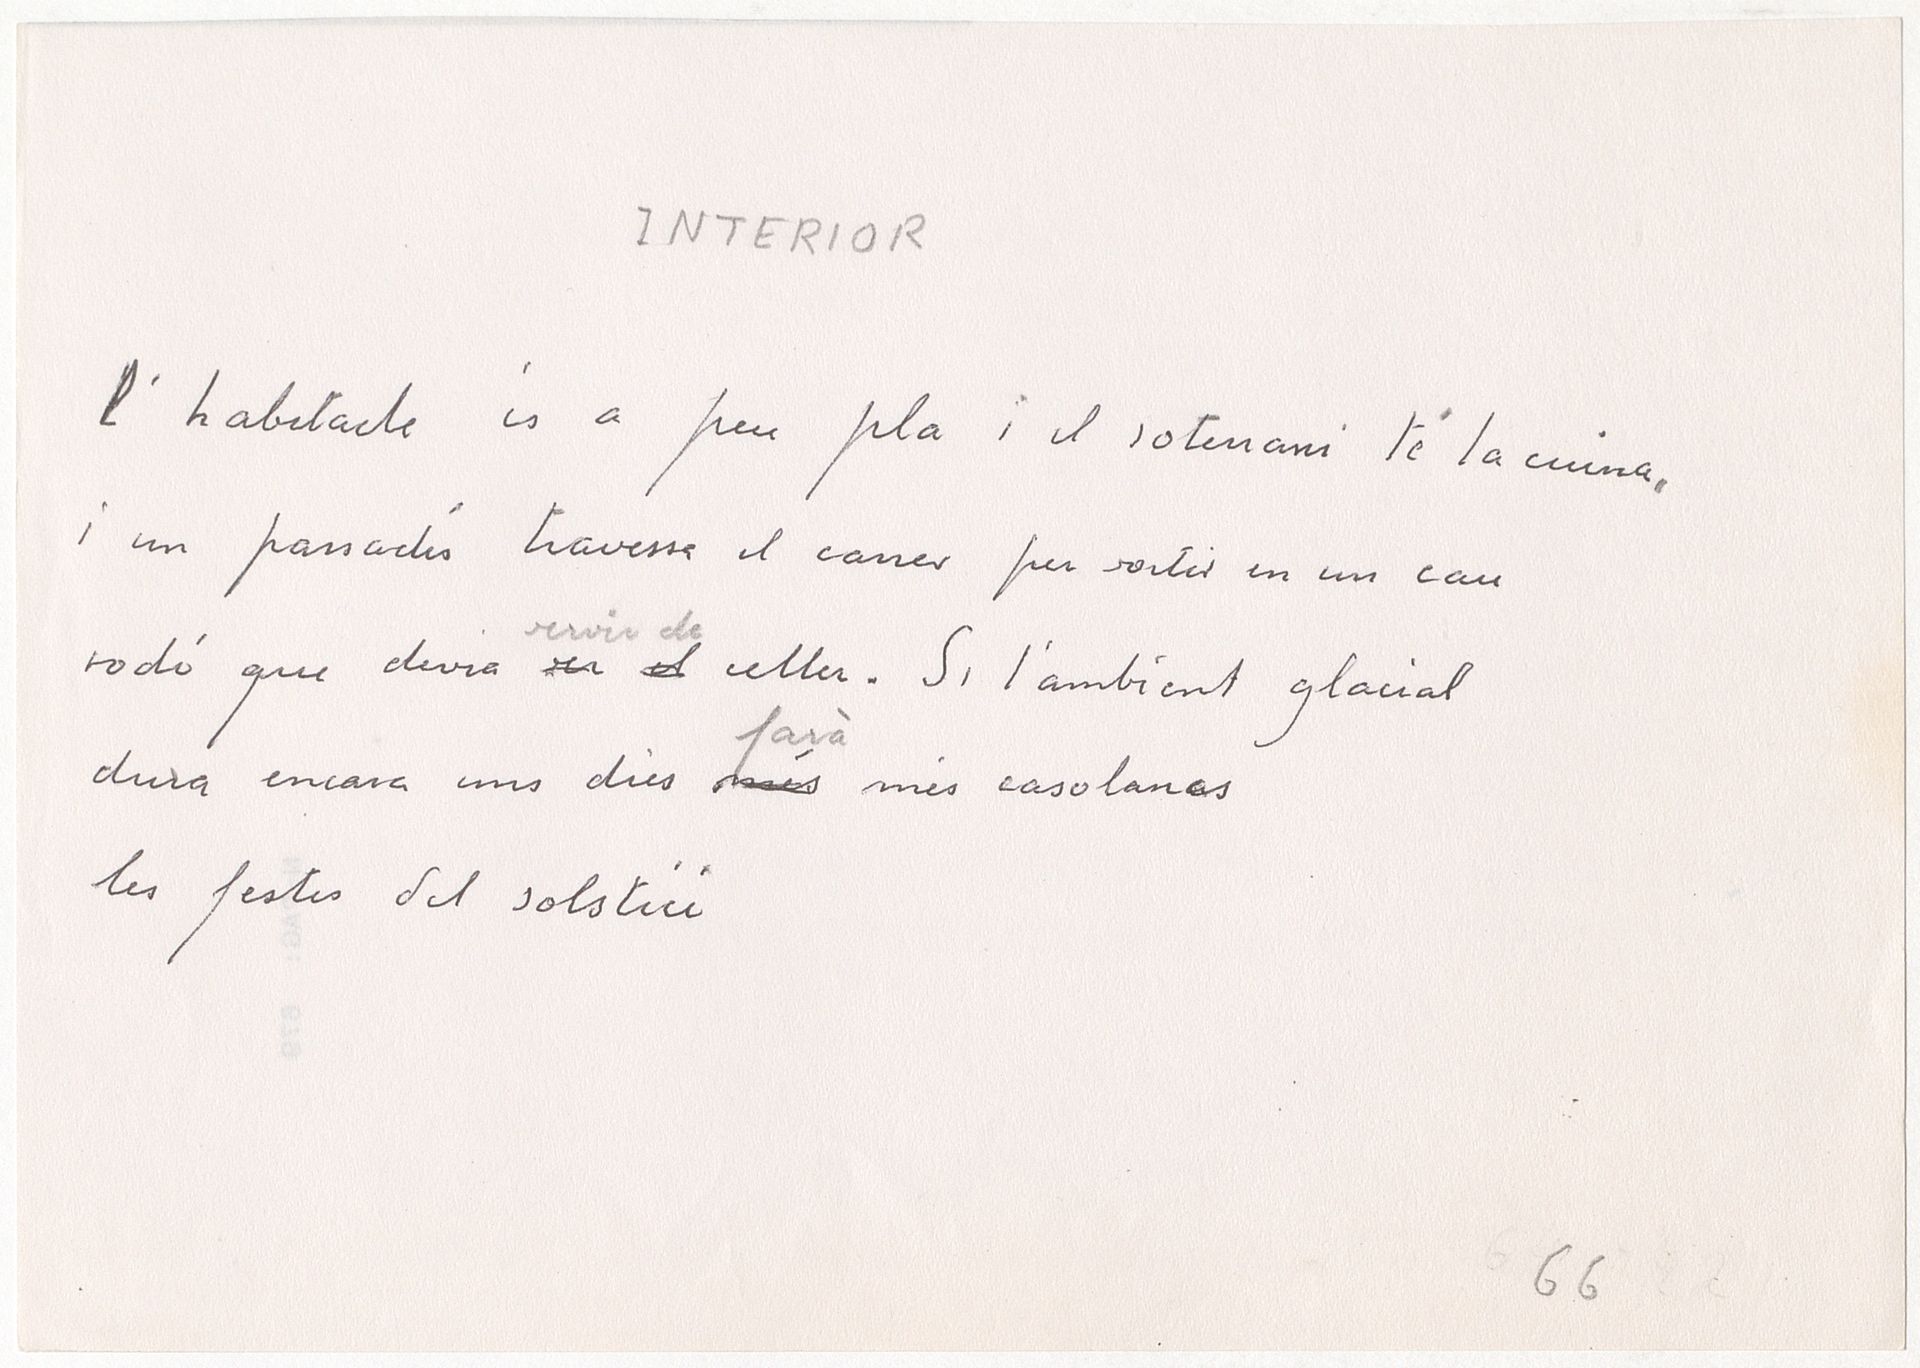 INTERIOR
l'habitacle és a peu pla i el soterrani té la cuina,
i un passadís travessa el carrer per sortir en un cau
servir de
rodó que devia ser el celler. Si l'ambient glacial
farà
dura encara uns dies més més casolanes
les festes del solstici
66